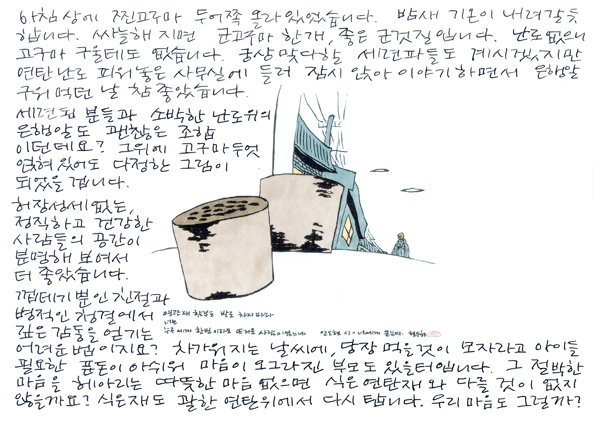 아침 상에 찐고구마 두어쪽 올라 있었습니다. 밤새 기온이 내려갈 듯
합니다. 싸늘해 지면 군고구마 한개, 좋은 군것질입니다. 난로 없으니
고구마 구울데도 없습니다. 궁상맞다하는 세련파들도 계시겠지만
연탄난로 피워 놓은 사무실에 들러 잠시 앉아 이야기하면서 은행알
구워먹던 날 참 좋았습니다.
세련된 분들과 소박한 난로위의
은행알도 괜찮은 조합
이던데요? 그위에 고구마두엇
얹혀있어도 다정한 그림이
되었을 겁니다.
허장성세 없는,
정직하고 건강한
사람들의 공간이
분명해 보여서
더 좋았습니다.
껍데기뿐인 친절과
병적인 청결에서
깊은 감동을 얻기는
어려운 법이지요? 차가워지는 날씨에, 당장 먹을것이 모자라고 아이들
필요한 푼돈이 아쉬워 마음이 오그라진 부모도 있을터입니다. 그 절박한
마음을 헤아리는 따뜻한 마음 없으면 식은 연탄재와 다를 것이 없지
않을까요? 식은재도 괄한 연탄위에서 다시 탑니다. 우리 마음도 그럴까?
연탄재 함부로 발로 차지 마라
너는
누구에게 한번이라도 뜨거운 사람이었느냐 안도현 시 너에게 묻는다.